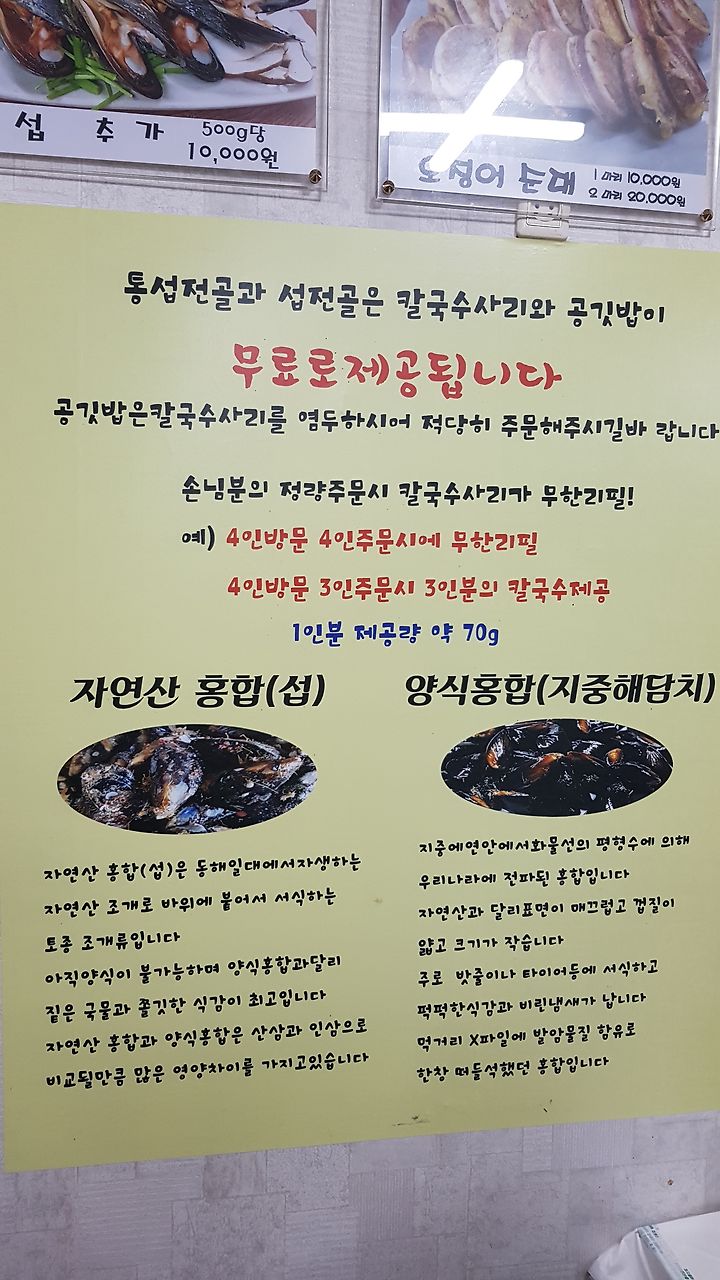 섭 추가 500g당
10,000원
오징어 순대 1마리 10,000원
2마리 20,000원
통섭전골과 섭전골은 칼국수사리와 공깃밥이
무료로제공됩니다
공깃밥은칼국수사리를 염두하시어 적당히 주문해주시길바 랍니다
손님분의 정량주문시 칼국수사리가 무한리필!
예) 4인방문 4인주문시에 무한리필
4인방문 3인주문시 3인분의 칼국수제공
1인분 제공량 약 70g
자연산 홍합(섭)
자연산 홍합(섭)은 동해일대에서자생하는
자연산 조개로 바위에 붙어서 서식하는
토종 조개류입니다
아직양식이 불가능하며 양식홍합과달리
짙은 국물과 쫄깃한 식감이 최고입니다
자연산 홍합과 양식홍합은 산삼과 인삼으로
비교될만큼 많은 영양차이를 가지고있습니다
양식홍합(지중해담치)
지중에연안에서화물선의 평형수에 의해
우리나라에 전파된 홍합입니다
자연산과 달리표면이 매끄럽고 껍질이
얇고 크기가 작습니다
주로 밧줄이나 타이어등에 서식하고
퍽퍽한식감과 비린냄새가 납니다
먹거리 X파일에 발암물질 함유로
한창 떠들석했던 홍합입니다